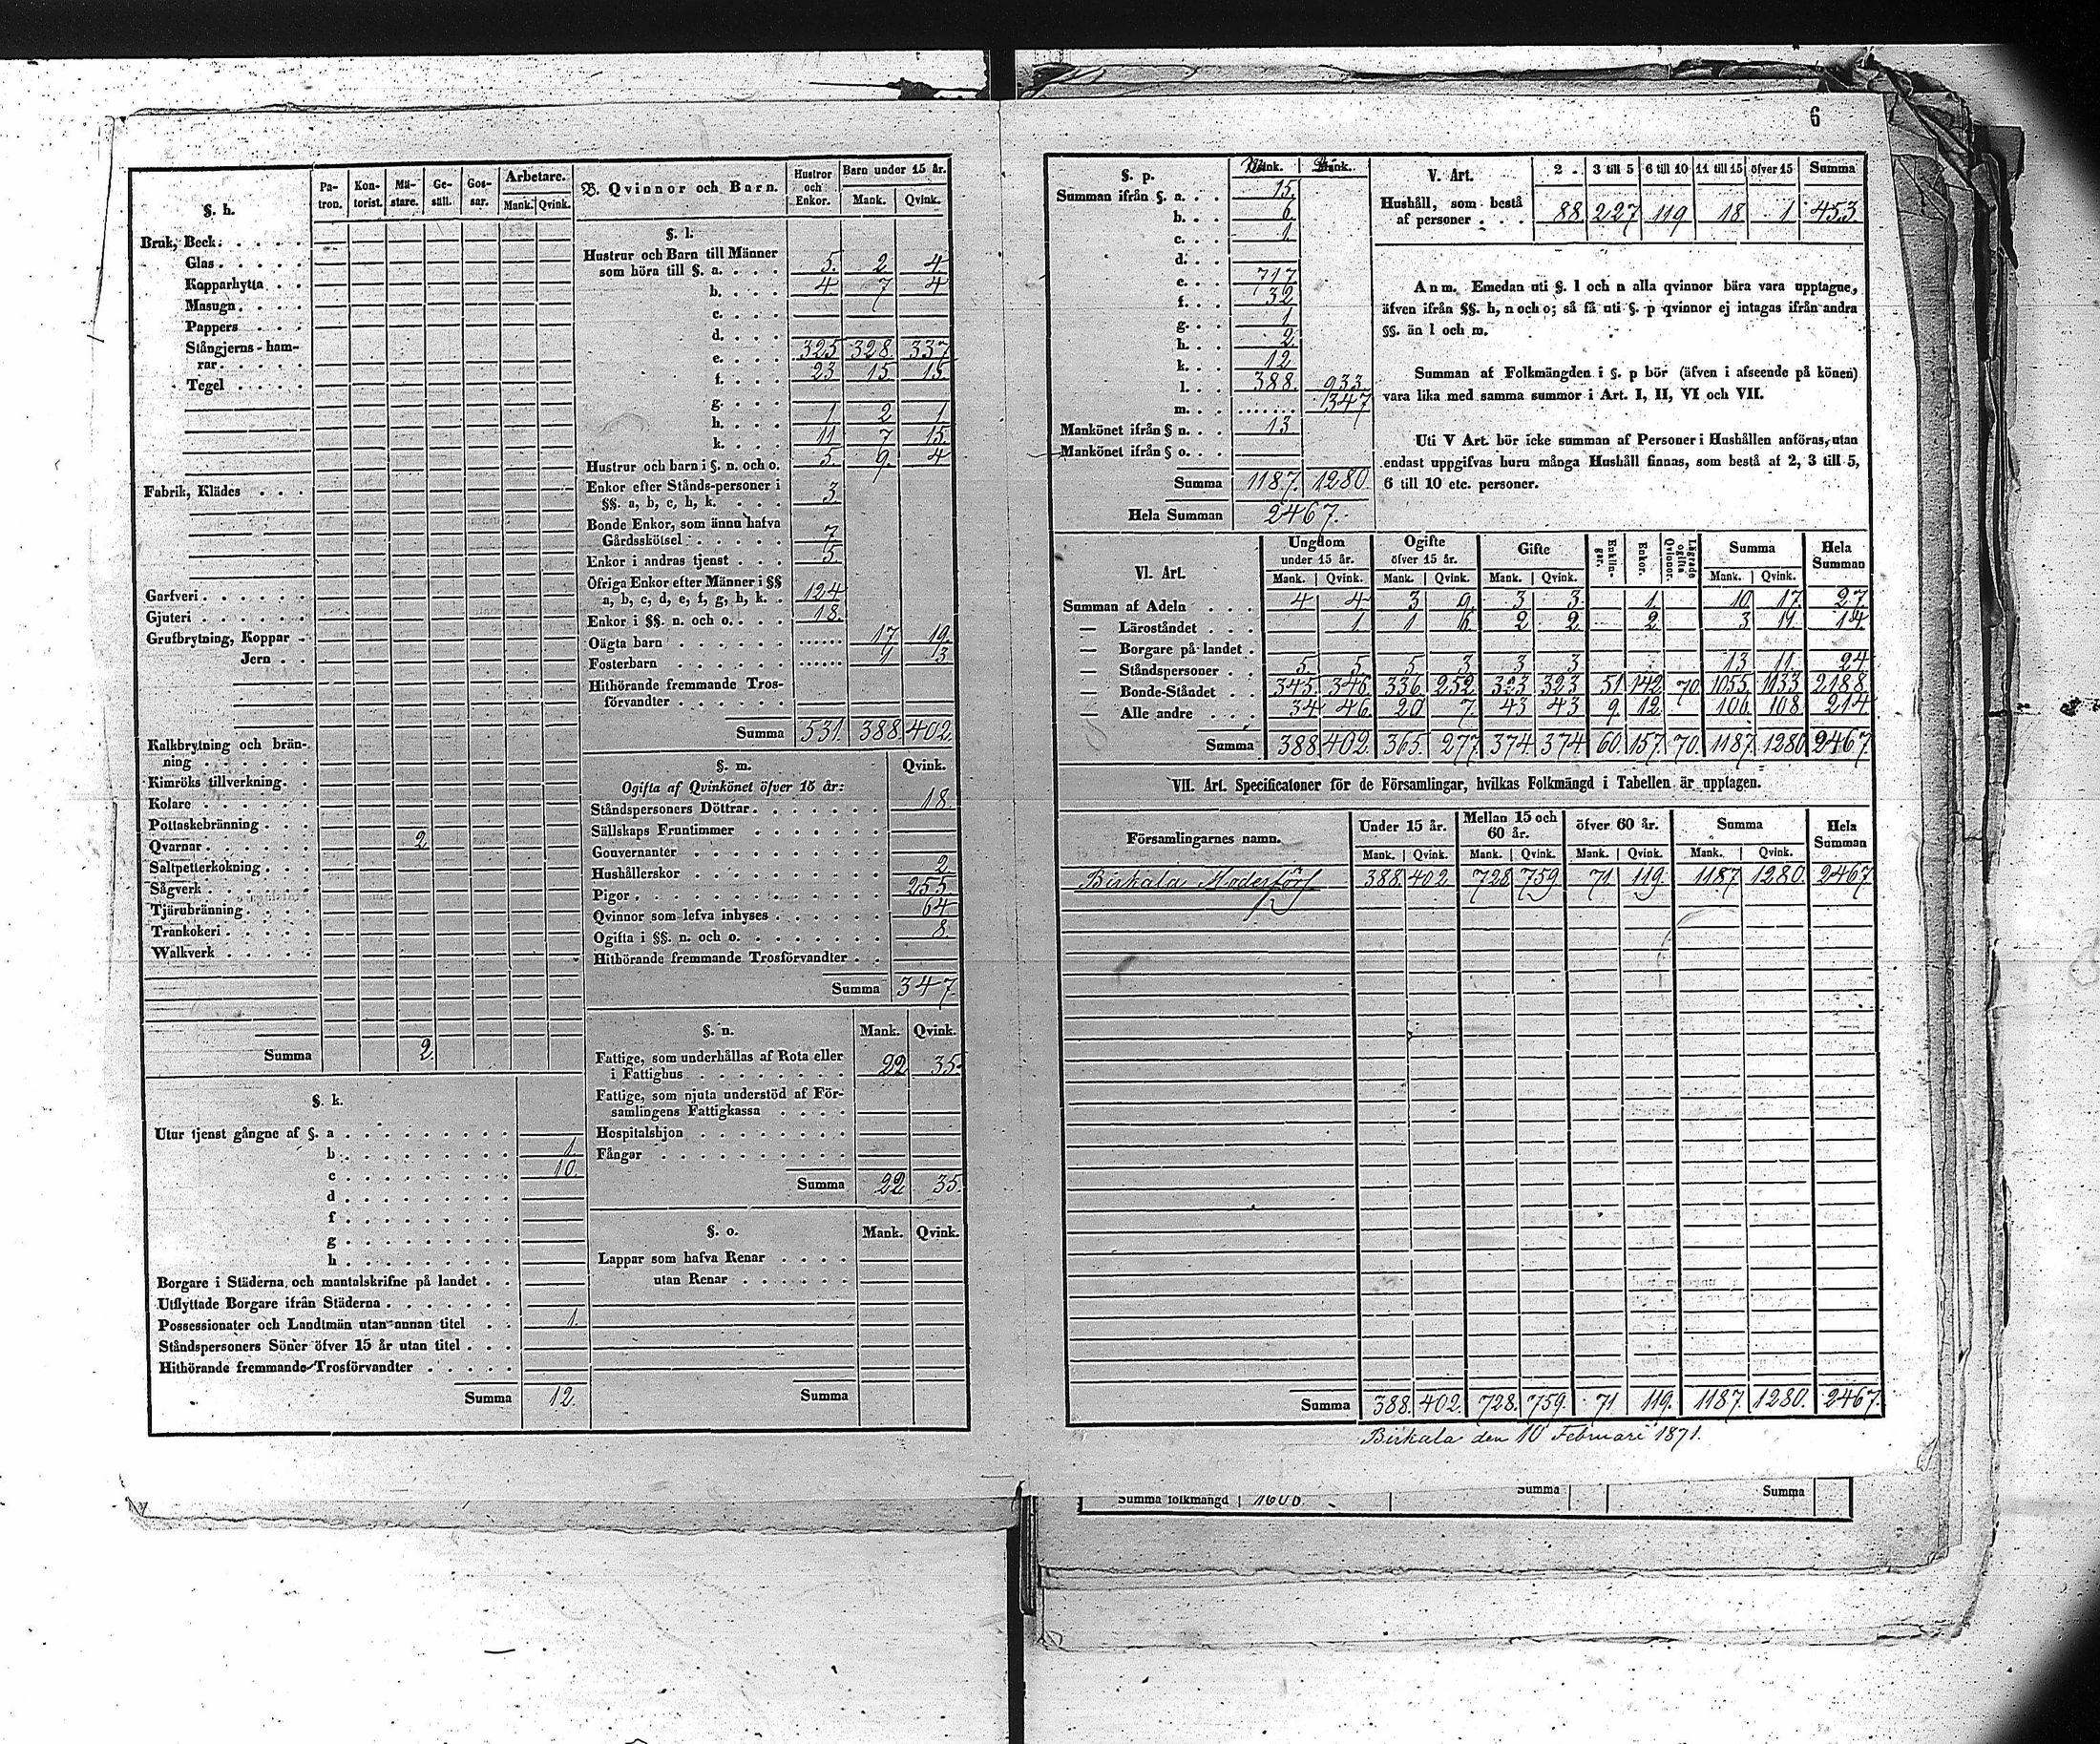 §. h.
Pa-tron. Kon-torist. Mä-stare. Ge-säll. Gos-sar. Arbetare. Mank. Qvink.
Bruk, Beck
Glas
Kopparhytta
Masugn
Pappers
Stångjerns-ham-
rar
Tegel
Fabrik, Klädes
Garfveri
Gjuteri
Grufbrytning, Koppar
Jern
Kalkbrytning och brän-
ning
Kimröks tillverkning
Kolare
Pottaskebränning
Qvarnar 2
Saltpetterkokning
Sågverk
Tjärubränning
Trankokeri
Walkverk
Summa 2
§. k.
Utur tjenst gångne af §. a
b 1.
c 10.
d
f
g
h
Borgare i Städerna och mantalskrifne på landet
Utflyttade Borgare ifrån Städerna
Possessionater och Landtmän utan annan titel 1.
Ståndspersoners Söner öfver 15 år utan titel
Hithörande fremmande Trosförvandter
Summa 12.
B. Qvinnor och Barn. Hustror och Enkor. Barn under 15 år. Mank. Qvink.
§. l:
Hustrur och Barn till Männer
som höra till §. a. 5. 2. 4.
b. 4. 7 4
c.
d.
e. 325 328. 337
f. 23 15. 15.
g.
h. 1. 2 1.
k. 11 7 15.
Hustrur och barn i §. n. och o. 5. 9. 4
Enkor efter Stånds-personer i
§§. a, b, c, h, k. 3.
Bonde Enkor, som ännu hafva
Gårdsskötsel 7
Enkor i andras tjenst 5.
Öfriga Enkor efter Männer i §§
a, b, c, d, e, f, g, h, k. 124
Enkor i §§. n. och o. 18.
Oägta barn 17 19.
Fosterbarn 1 3
Hithörande fremmande Tros-
förvandter
Summa 531. 388. 402.
§. m. Qvink.
Ogifta af Qvinkönet öfver 15 år:
Ståndspersoners Döttrar 18.
Sällskaps Fruntimmer
Gouvernanter
Hushållerskor 2.
Pigor 255.
Qvinnor som lefva inhyses 64
Ogifta i §§. n. och o. 8.
Hithörande fremmande Trosförvandter
Summa 347.
§. n. Mank. Qvink.
Fattige, som underhållas af Rota eller
i Fattighus 22 35.
Fattige, som njuta understöd af För-
samlingens Fattigkassa
Hospitalshjon
Fångar
Summa 22. 35.
§. o. Mank. Qvink.
Lappar som hafva Renar
utan Renar
Summa
6
§. p. Mank.
Summan ifrån §. a. 15.
b. 6.
c. 1.
d.
e. 717
f. 32
g. 1
h. 2
k. 12
l. 388. 933.
m. 347
Mankönet ifrån § n. 13
Mankönet ifrån § o.
Summa 1187. 1280.
Hela Summan 2467.
V. Art. 2 3 till 5 6 till 10 11 till 15 öfver 15 Summa
Hushåll, som bestå
af personer 88 227 119 18 1 453
Anm. Emedan uti §. l och n alla qvinnor böra vara upptagne,
äfven ifrån §§. h, n och o; så få uti §. p qvinnor ej intagas ifrån andra
§§. än l och m.
Summan af Folkmängden i §. p bör (äfven i afseende på könen)
vara lika med samma summor i Art. I, II, VI och VII.
Uti V Art. bör icke summan af Personer i Hushållen anföras, utan
endast uppgifvas huru många Hushåll finnas, som bestå af 2, 3 till 5,
6 till 10 etc. personer.
VI. Art. Ungdom under 15 år. Ogifte öfver 15 år. Gifte Enklin-gar. Enkor. Lägrade ogifta Qvinnor. Summa Hela Summan
Mank. Qvink. Mank. Qvink. Mank. Qvink. Mank. Qvink.
Summan af Adeln 4 4 3 9. 3 3. 1. 10 17. 27.
— Läroståndet 1 1 6. 2 2. 2. 3 11. 14.
— Borgare på landet
— Ståndspersoner 5 5 5 3 3 3 13 11. 24
— Bonde-Ståndet 345. 346. 336 252. 323 323 51 142. 70 1055. 1133. 2188.
— Alle andre 34 46. 20 7. 43 43 9. 12. 106. 108 214
Summa 388. 402. 365. 277. 374 374 60. 157. 70. 1187. 1280 2467.
VII. Art. Specificatoner för de Församlingar, hvilkas Folkmängd i Tabellen är upptagen.
Församlingarnes namn. Under 15 år. Mellan 15 och 60 år. öfver 60 år. Summa Hela Summan
Mank. Qvink. Mank. Qvink. Mank. Qvink. Mank. Qvink.
Birkala Moderförs 388. 402. 728. 759 71. 119. 1187. 1280. 2467
Summa 388. 402. 728. 759. 71 119. 1187. 1280. 2467.
Birkala den 10 Februari 1871.
Summa folkmängd 1606. Summa Summa